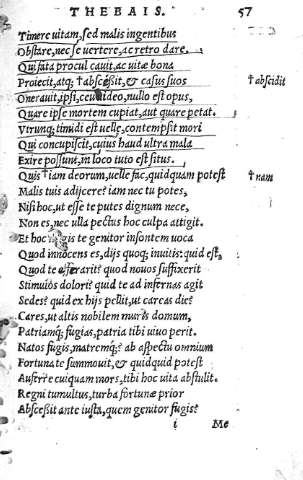 THEBAIS. 57
Timere uitam, sed malis ingentibus
Obstare, nec se uertere, ac retro dare.
Qui fata procul cauit, ac uitæ bona
Proiecit, atq; †abscessit, & casus suos †abscidit
Onerauit ipsi, ceu uideo, nullo est opus,
Quare ipse mortem cupiat, aut quare petat.
Vtrunq; timidi est uelle, contempsit mori
Qui concupiscit, cuius haud ultra mala
Exire possunt, in loco tuto est situs.
Quis †iam deorum, uelle fac, quidquam potest †nam
Malis tuis adijcere? iam nec tu potes,
Nisi hoc, ut esse te putes dignum nece,
Non es, nec ulla pectus hoc culpa attigit.
Et hoc magis te genitor insontem uoca
Quod innocens es, dijs quoq; inuitis: quid est,
Quod te efferarit? quod nouos suffixerit
Stimulos dolori? quid te ad infernas agit
Sedes? quid ex hijs pellit, ut careas die?
Cares, ut altis nobilem muris domum,
Patriamq; fugias, patria tibi uiuo perit.
Natos fugis, matremq;? ab aspectu omnium
Fortuna te summouit, & quidquid potest
Auferre cuiquam mors, tibi hoc uita abstulit.
Regni tumultus, turba fortunæ prior
Abscessit ante iussa, quem genitor fugis?
i Me